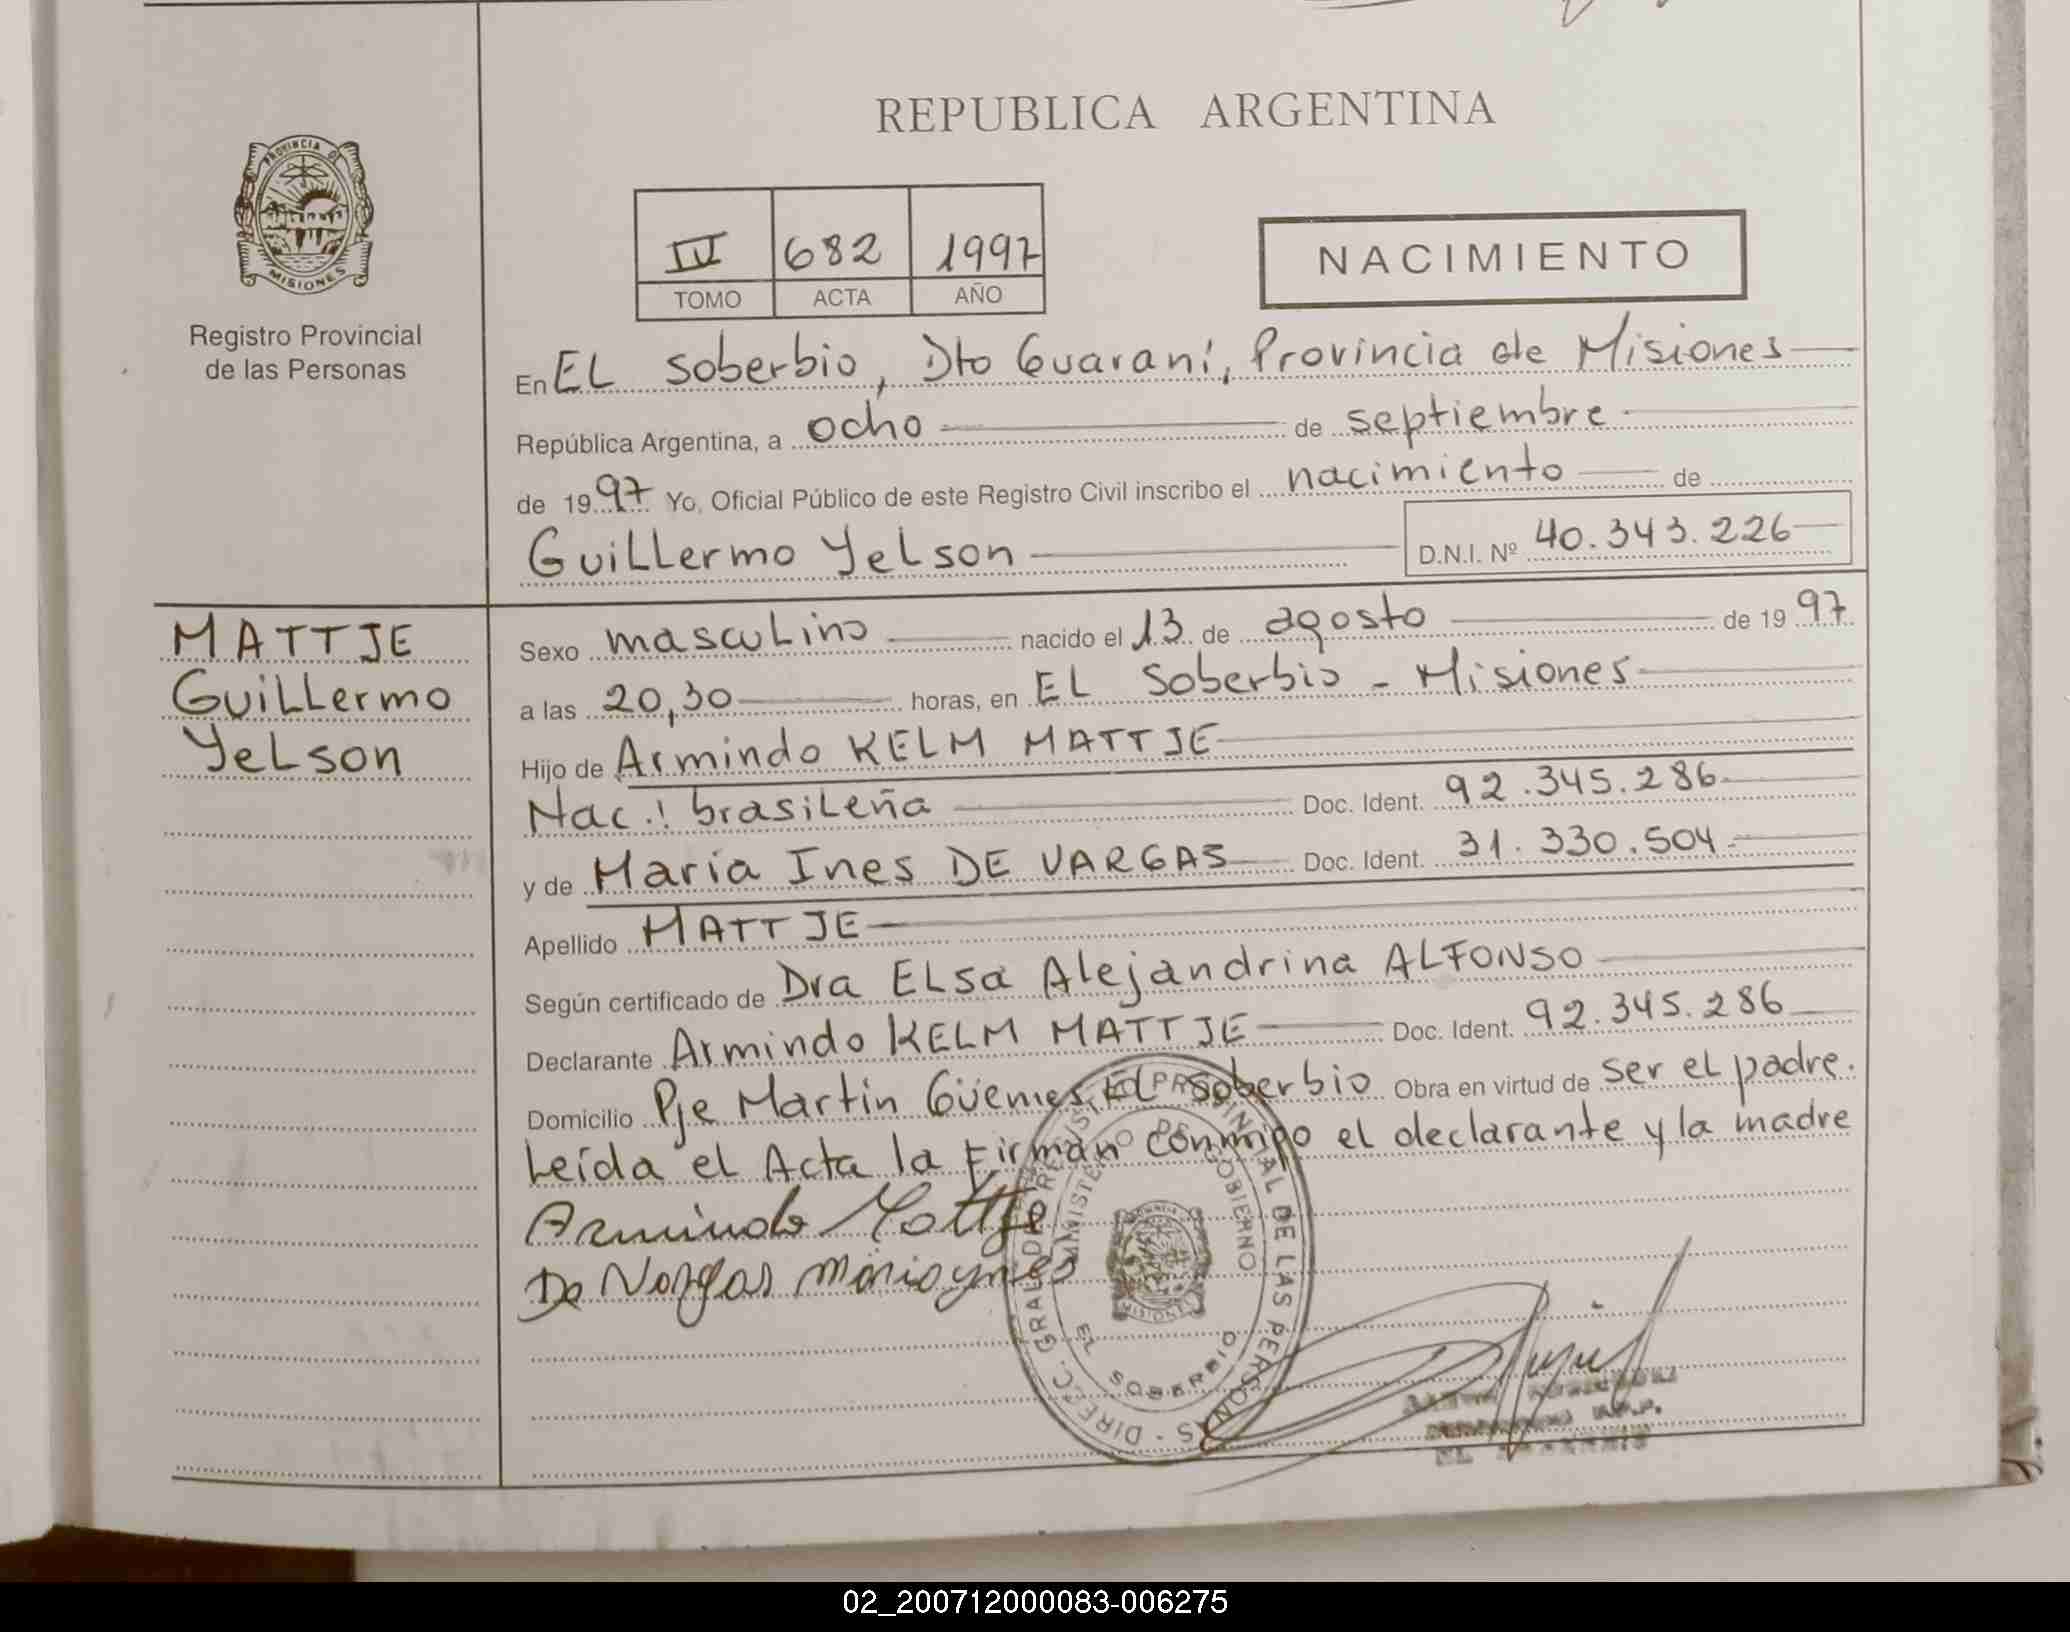 REPUBLICA ARGENTINA
PROVINCIA DE
MISIONES
Registro Provincial
de las Personas
IV 682 1997
TOMO ACTA AÑO
NACIMIENTO
En EL Soberbio, Dto Guaraní, Provincia de Misiones
República Argentina, a ocho de septiembre
de 1997 Yo, Oficial Público de este Registro Civil inscribo el nacimiento de
Guillermo Yelson D.N.I. Nº 40.343.226
MATTJE
Guillermo
Yelson
Sexo masculino nacido el 13 de agosto de 1997
a las 20,30 horas, en EL Soberbio - Misiones
Hijo de Armindo KELM MATTJE
Nac.: brasileña Doc. Ident. 92.345.286
y de Maria Ines DE VARGAS Doc. Ident. 31.330.504
Apellido MATTJE
Según certificado de Dra Elsa Alejandrina ALFONSO
Declarante Armindo KELM MATTJE Doc. Ident. 92.345.286
Domicilio Pje Martin Güemes, El Soberbio Obra en virtud de ser el padre.
Leída el Acta la Firman conmigo el declarante y la madre
Armindo Mattje
De Vargas maria ynes
DIREC. GRAL. DEL REGISTRO PROVINCIAL DE LAS PERSONAS
MINISTERIO DE GOBIERNO
MISIONES
EL SOBERBIO
02_200712000083-006275